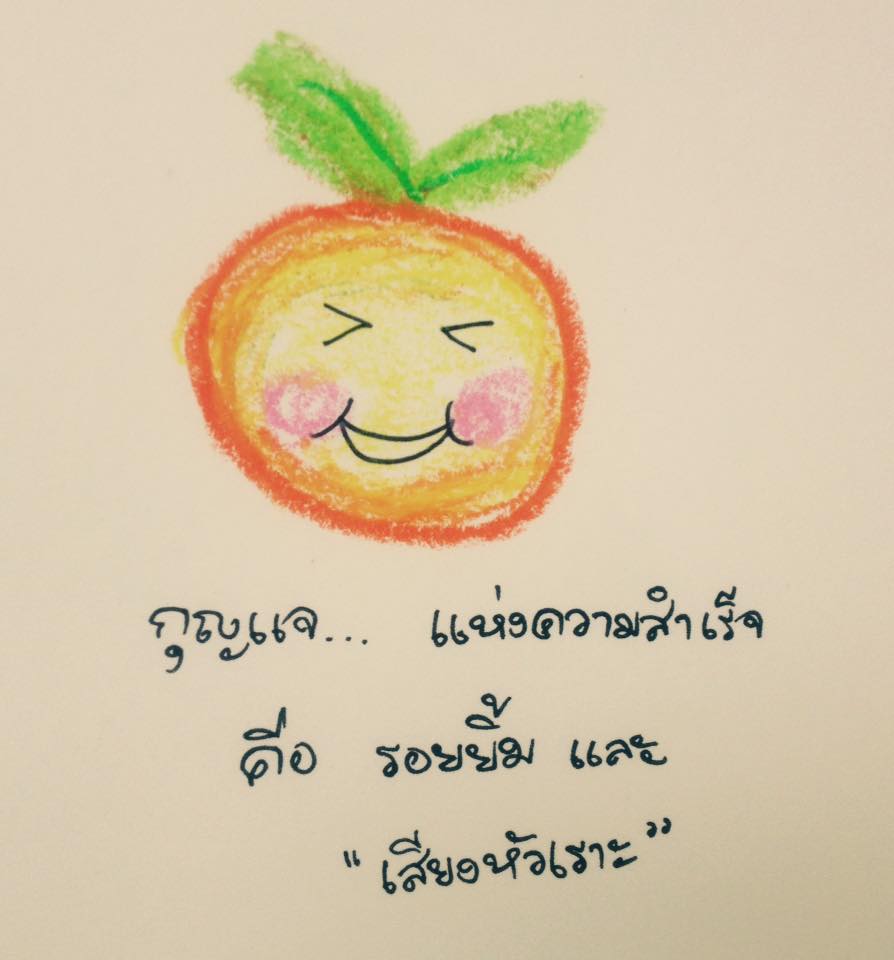 กุญแจ... แห่งความสำเร็จ
คือ รอยยิ้ม และ
"เสียงหัวเราะ"